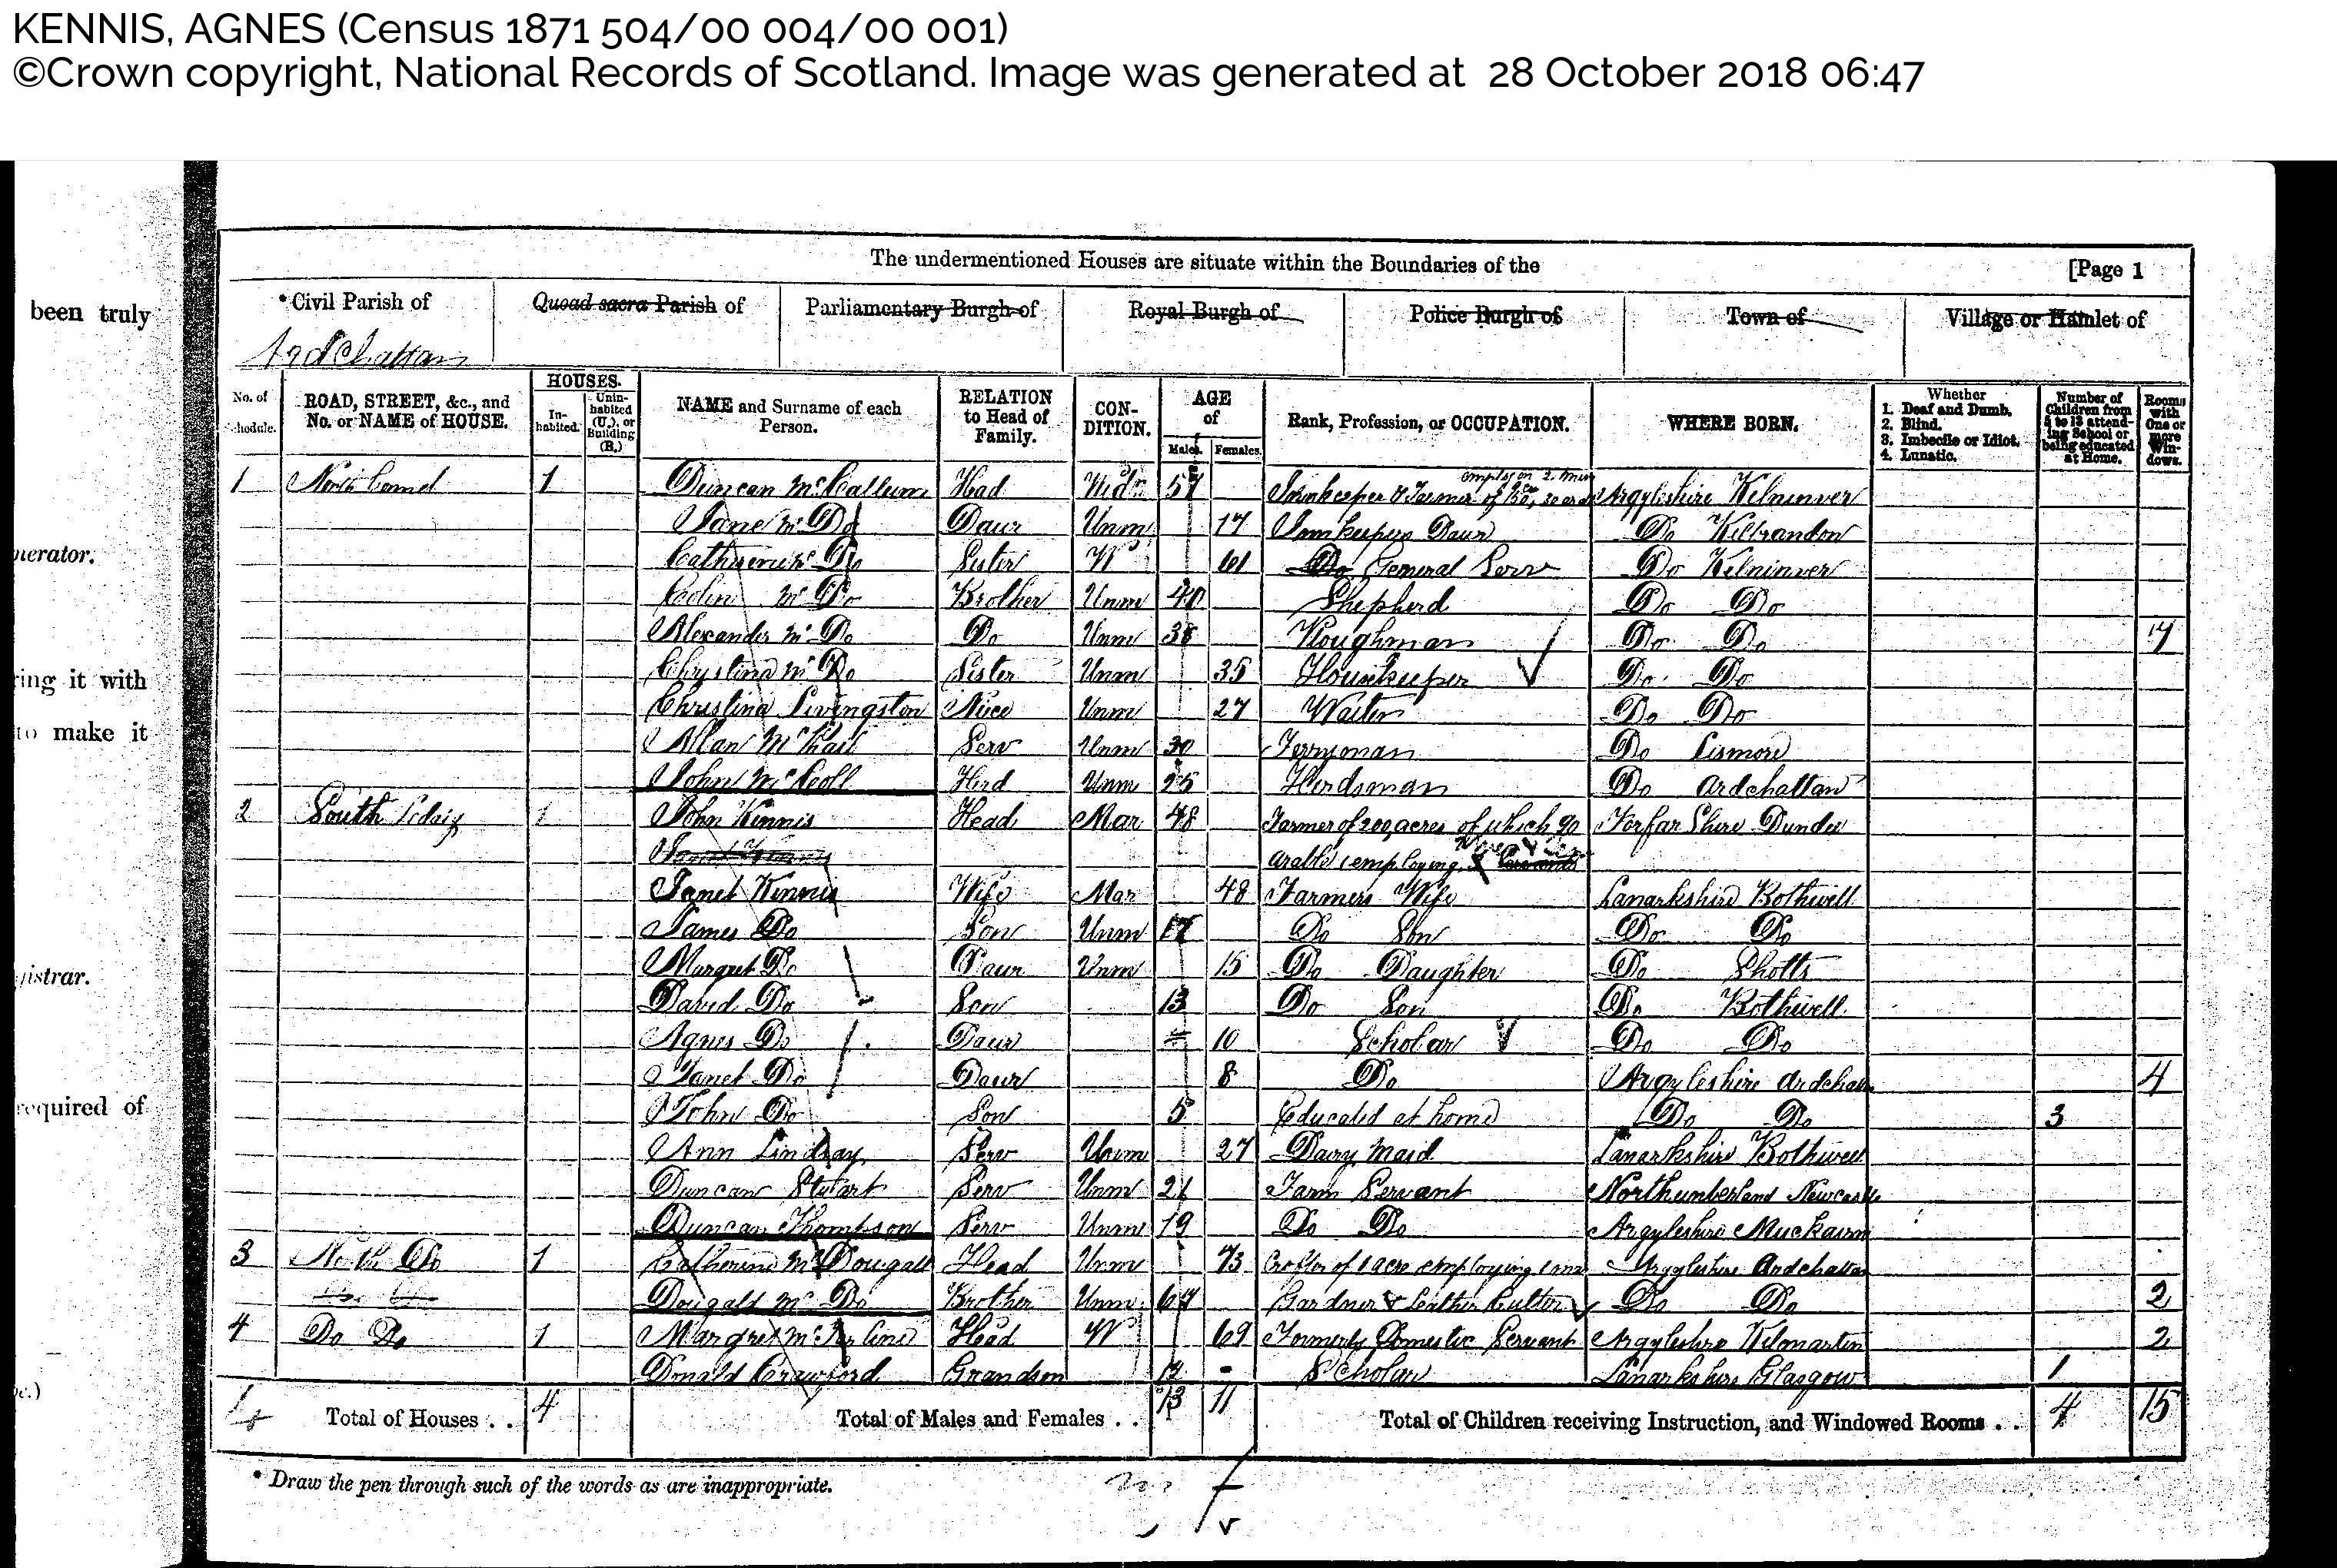 KENNIS, AGNES (Census 1871 504/00 004/00 001)
©Crown copyright, National Records of Scotland. Image was generated at 28 October 2018 06:47
been truly
ring it with
to make it
required of
The undermentioned Houses are situate within the Boundaries of the [Page 1
* Civil Parish of Quoad sacra Parish of Parliamentary Burgh of Royal Burgh of Police Burgh of Town of Village or Hamlet of
Ardchattan
No. of hedule. ROAD, STREET, &c., and No. or NAME of HOUSE. HOUSES. In-habited. Unin-habited (U.), or Building (B.) NAME and Surname of each Person. RELATION to Head of Family. CON-DITION. AGE of Males. Females. Rank, Profession, or OCCUPATION. WHERE BORN. Whether 1. Deaf and Dumb. 2. Blind. 3. Imbecile or Idiot. 4. Lunatic. Number of Children from 5 to 13 attend-ing School or being educated at Home. Rooms with One or more Win-dows.
1 North 1 Duncan McCallum Head Widr 57 Innkeeper & Farmer of employing 2 men Argyleshire Kilninver
Jane Mc Do Daur Unm 17 Innkeepers Daur Do Kilbrandon
Catherine Mc Do Sister W 61 Do General Serv Do Kilninver
Colin Mc Do Brother Unm 40 Shepherd Do Do
Alexander Mc Do Do Unm 38 Ploughman Do Do 7
Chrystina Mc Do Sister Unm 35 Housekeeper Do Do
Christina Livingston Niece Unm 27 Waiter Do Do
Allan McPhail Serv Unm 30 Ferryman Do Lismore
John McColl Herd Unm 25 Herdsman Do Ardchattan
2 South Ledaig 1 John Kennis Head Mar 48 Farmer of 200 acres of which 90 Forfar Shire Dundee
arable employing
Janet Kennis Wife Mar 48 Farmers Wife Lanarkshire Bothwell
James Do Son Unm 17 Do Son Do Do
Margret Do Daur Unm 15 Do Daughter Do Shotts
David Do Son 13 Do Son Do Bothwell
Agnes Do Daur 10 Scholar Do Do
Janet Do Daur 8 Do Argyleshire Ardchattan 4
John Do Son 5 Educated at home Do Do 3
Ann Lindsay Serv Unm 27 Dairy Maid Lanarkshire Bothwell
Duncan Stewart Serv Unm 21 Farm Servant Northumberland Newcastle
Duncan Thompson Serv Unm 19 Do Do Argyleshire Muckairn
3 North Do 1 Catherine McDougall Head Unm 73 Crofter of 1 acre employing 1 man Argyleshire Ardchattan
Dougald Mc Do Brother Unm 67 Gardner & Leather Cutter Do Do 2
4 Do Do 1 Margret Head W 69 Formerly Domestic Servant Argyleshire Kilmartin 2
Donald Crawford Grandson 12 Scholar Lanarkshire Glasgow 1
Total of Houses . . 4 Total of Males and Females . . 13 11 Total of Children receiving Instruction, and Windowed Rooms . . 4 15
* Draw the pen through such of the words as are inappropriate.